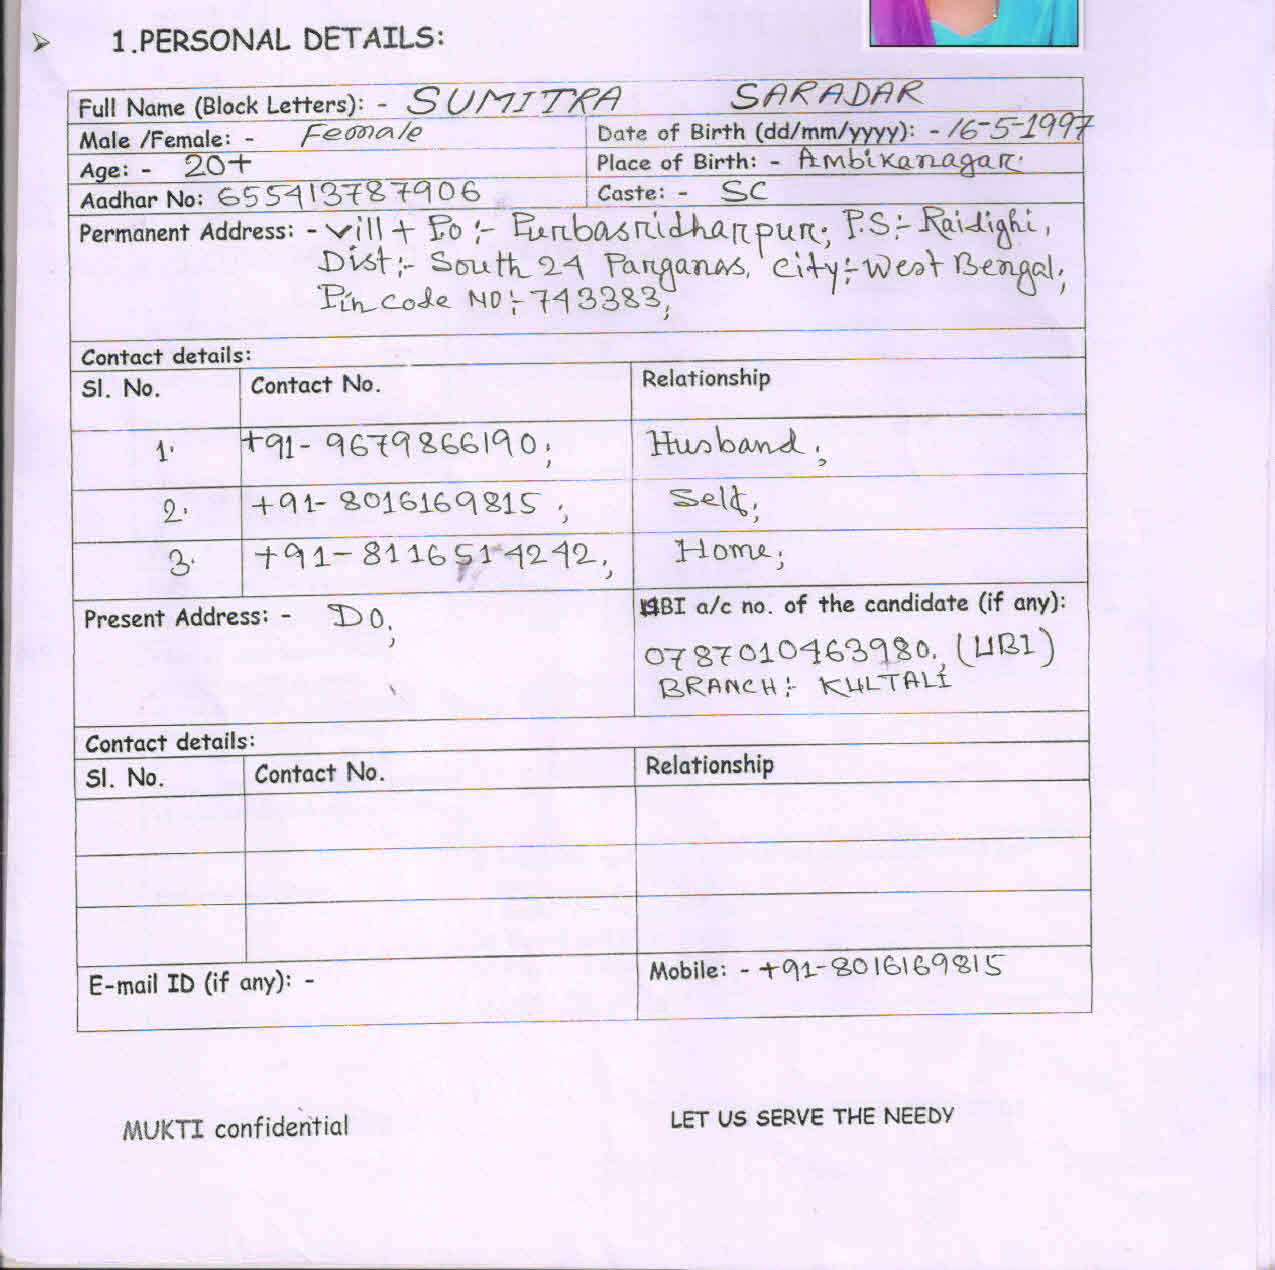 ➢ 1.PERSONAL DETAILS:
Full Name (Block Letters): - SUMITRA SARADAR
Male /Female: - Female Date of Birth (dd/mm/yyyy): - 16-5-1997
Age: - 20+ Place of Birth: - Ambikanagar.
Aadhar No: 655413787906 Caste: - SC
Permanent Address: - vill + Po :- Purbasridharpur; P.S:- Raidighi,
Dist:- South 24 Parganas, city:- West Bengal;
Pin code NO:- 743383;
Contact details:
Sl. No. Contact No. Relationship
1. +91- 9679866190; Husband;
2. +91- 8016169815 ; Self;
3. +91- 8116514242; Home;
Present Address: - DO; UBI a/c no. of the candidate (if any):
0787010463980, (UBI)
BRANCH:- KULTALI
Contact details:
Sl. No. Contact No. Relationship
E-mail ID (if any): - Mobile: - +91-8016169815
MUKTI confidential LET US SERVE THE NEEDY